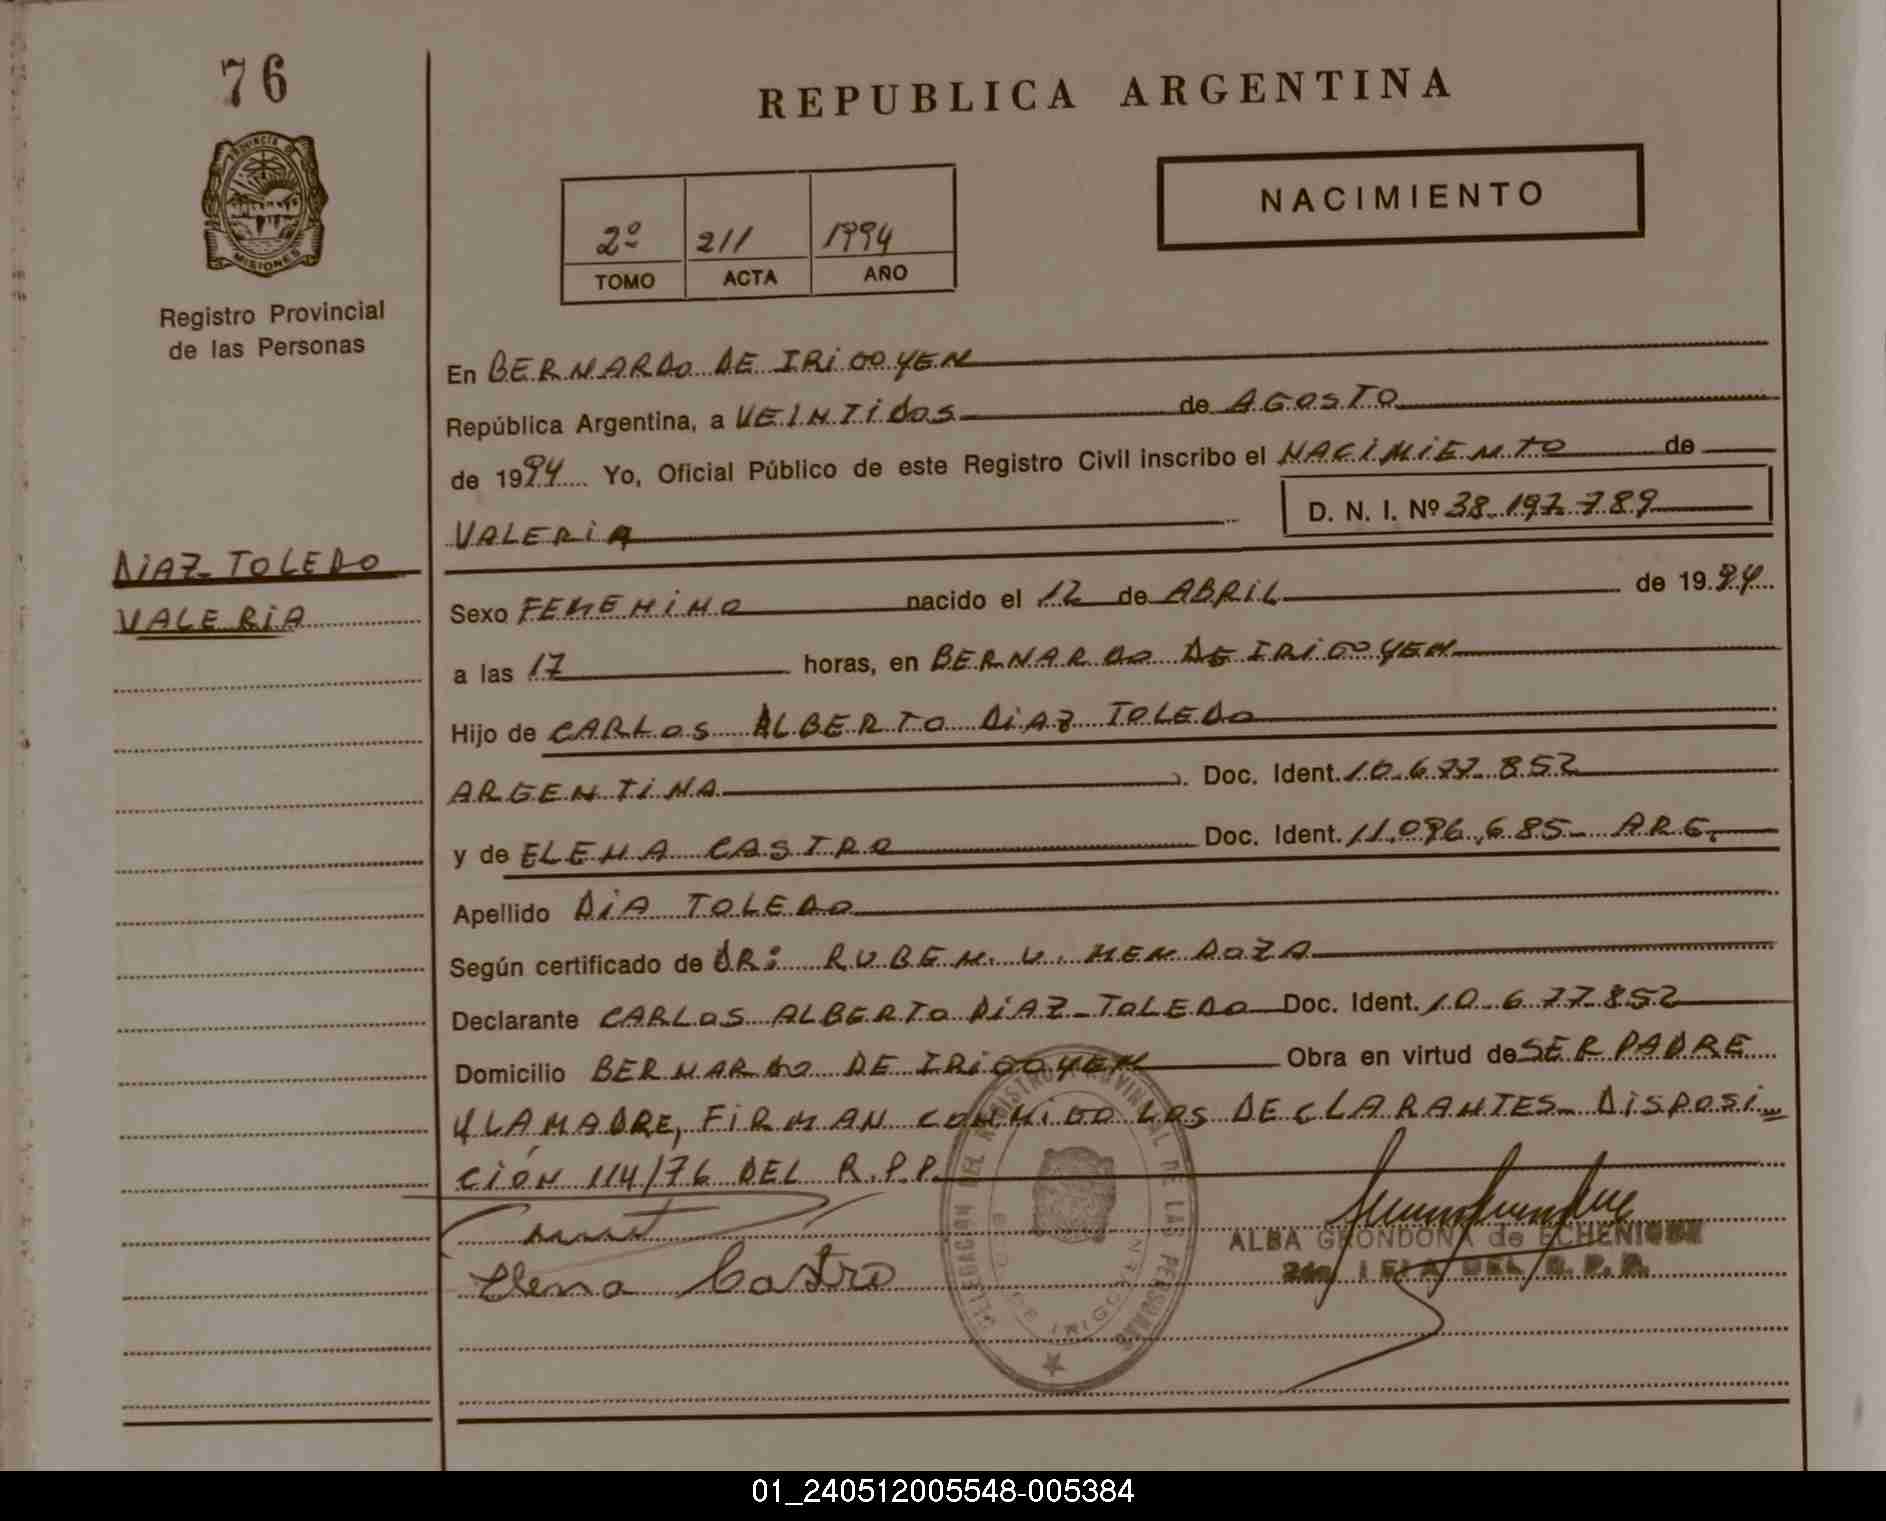 76
REPUBLICA ARGENTINA
NACIMIENTO
PROVINCIA DE
MISIONES
Registro Provincial
de las Personas
2º 211 1994
TOMO ACTA AÑO
En BERNARDO DE IRIGOYEN
República Argentina, a VEINTIDOS de AGOSTO
de 1994 Yo, Oficial Público de este Registro Civil inscribo el NACIMIENTO de
VALERIA D. N. I. Nº 38.197.789
DIAZ TOLEDO
VALERIA
Sexo FEMENINO nacido el 12 de ABRIL de 1994
a las 17 horas, en BERNARDO DE IRIGOYEN
Hijo de CARLOS ALBERTO DIAZ TOLEDO
ARGENTINA Doc. Ident. 10.677.852
y de ELENA CASTRO Doc. Ident. 11.096.685- ARG.
Apellido DIA TOLEDO
Según certificado de DR: RUBEN. V. MENDOZA
Declarante CARLOS ALBERTO DIAZ-TOLEDO Doc. Ident. 10.677.852
Domicilio BERNARDO DE IRIGOYEN Obra en virtud de SER PADRE
Y LA MADRE, FIRMAN CONMIGO LOS DECLARANTES- DISPOSI-
CIÓN 114/76 DEL R.P.P.
Elena Castro
DELEGACION DEL REGISTRO PROVINCIAL DE LAS PERSONAS
BDO. DE IRIGOYEN
ALBA GRONDONA de ECHENIQUE
DEL R. P. P.
01_240512005548-005384